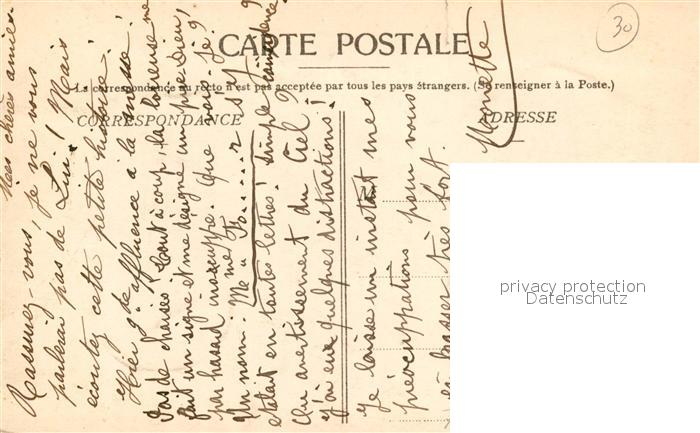 30
CARTE POSTALE
La correspondance au recto n'est pas acceptée par tous les pays étrangers. (Se renseigner à la Poste.)
CORRESPONDANCE
ADRESSE
M
Mes chères amies
Rassurez-vous, je ne vous
parlerai pas de Lui! Mais
écoutez cette petite histoire.
Hier gde affluence à la messe.
Pas de chaises! Tout à coup, la loueuse me
fait un signe et me désigne un prie-Dieu,
par hasard inoccupé. Que vois-je?
Un nom. Me
était en toutes lettres! Simple coïncidence?
Ou avertissement du Ciel?
J'ai eu quelques distractions!
Je laisse un instant mes
préoccupations pour vous
embrasser très fort.
privacy protection
Datenschutz